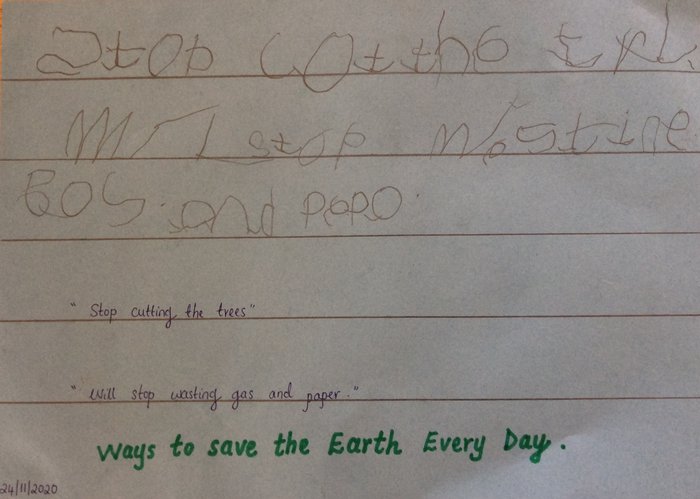 Stop Cot the
Mi L stop Wostine
GOS. and PePO.
"Stop cutting the trees"
"Will stop wasting gas and paper."
Ways to save the Earth Every Day.
24/11/2020